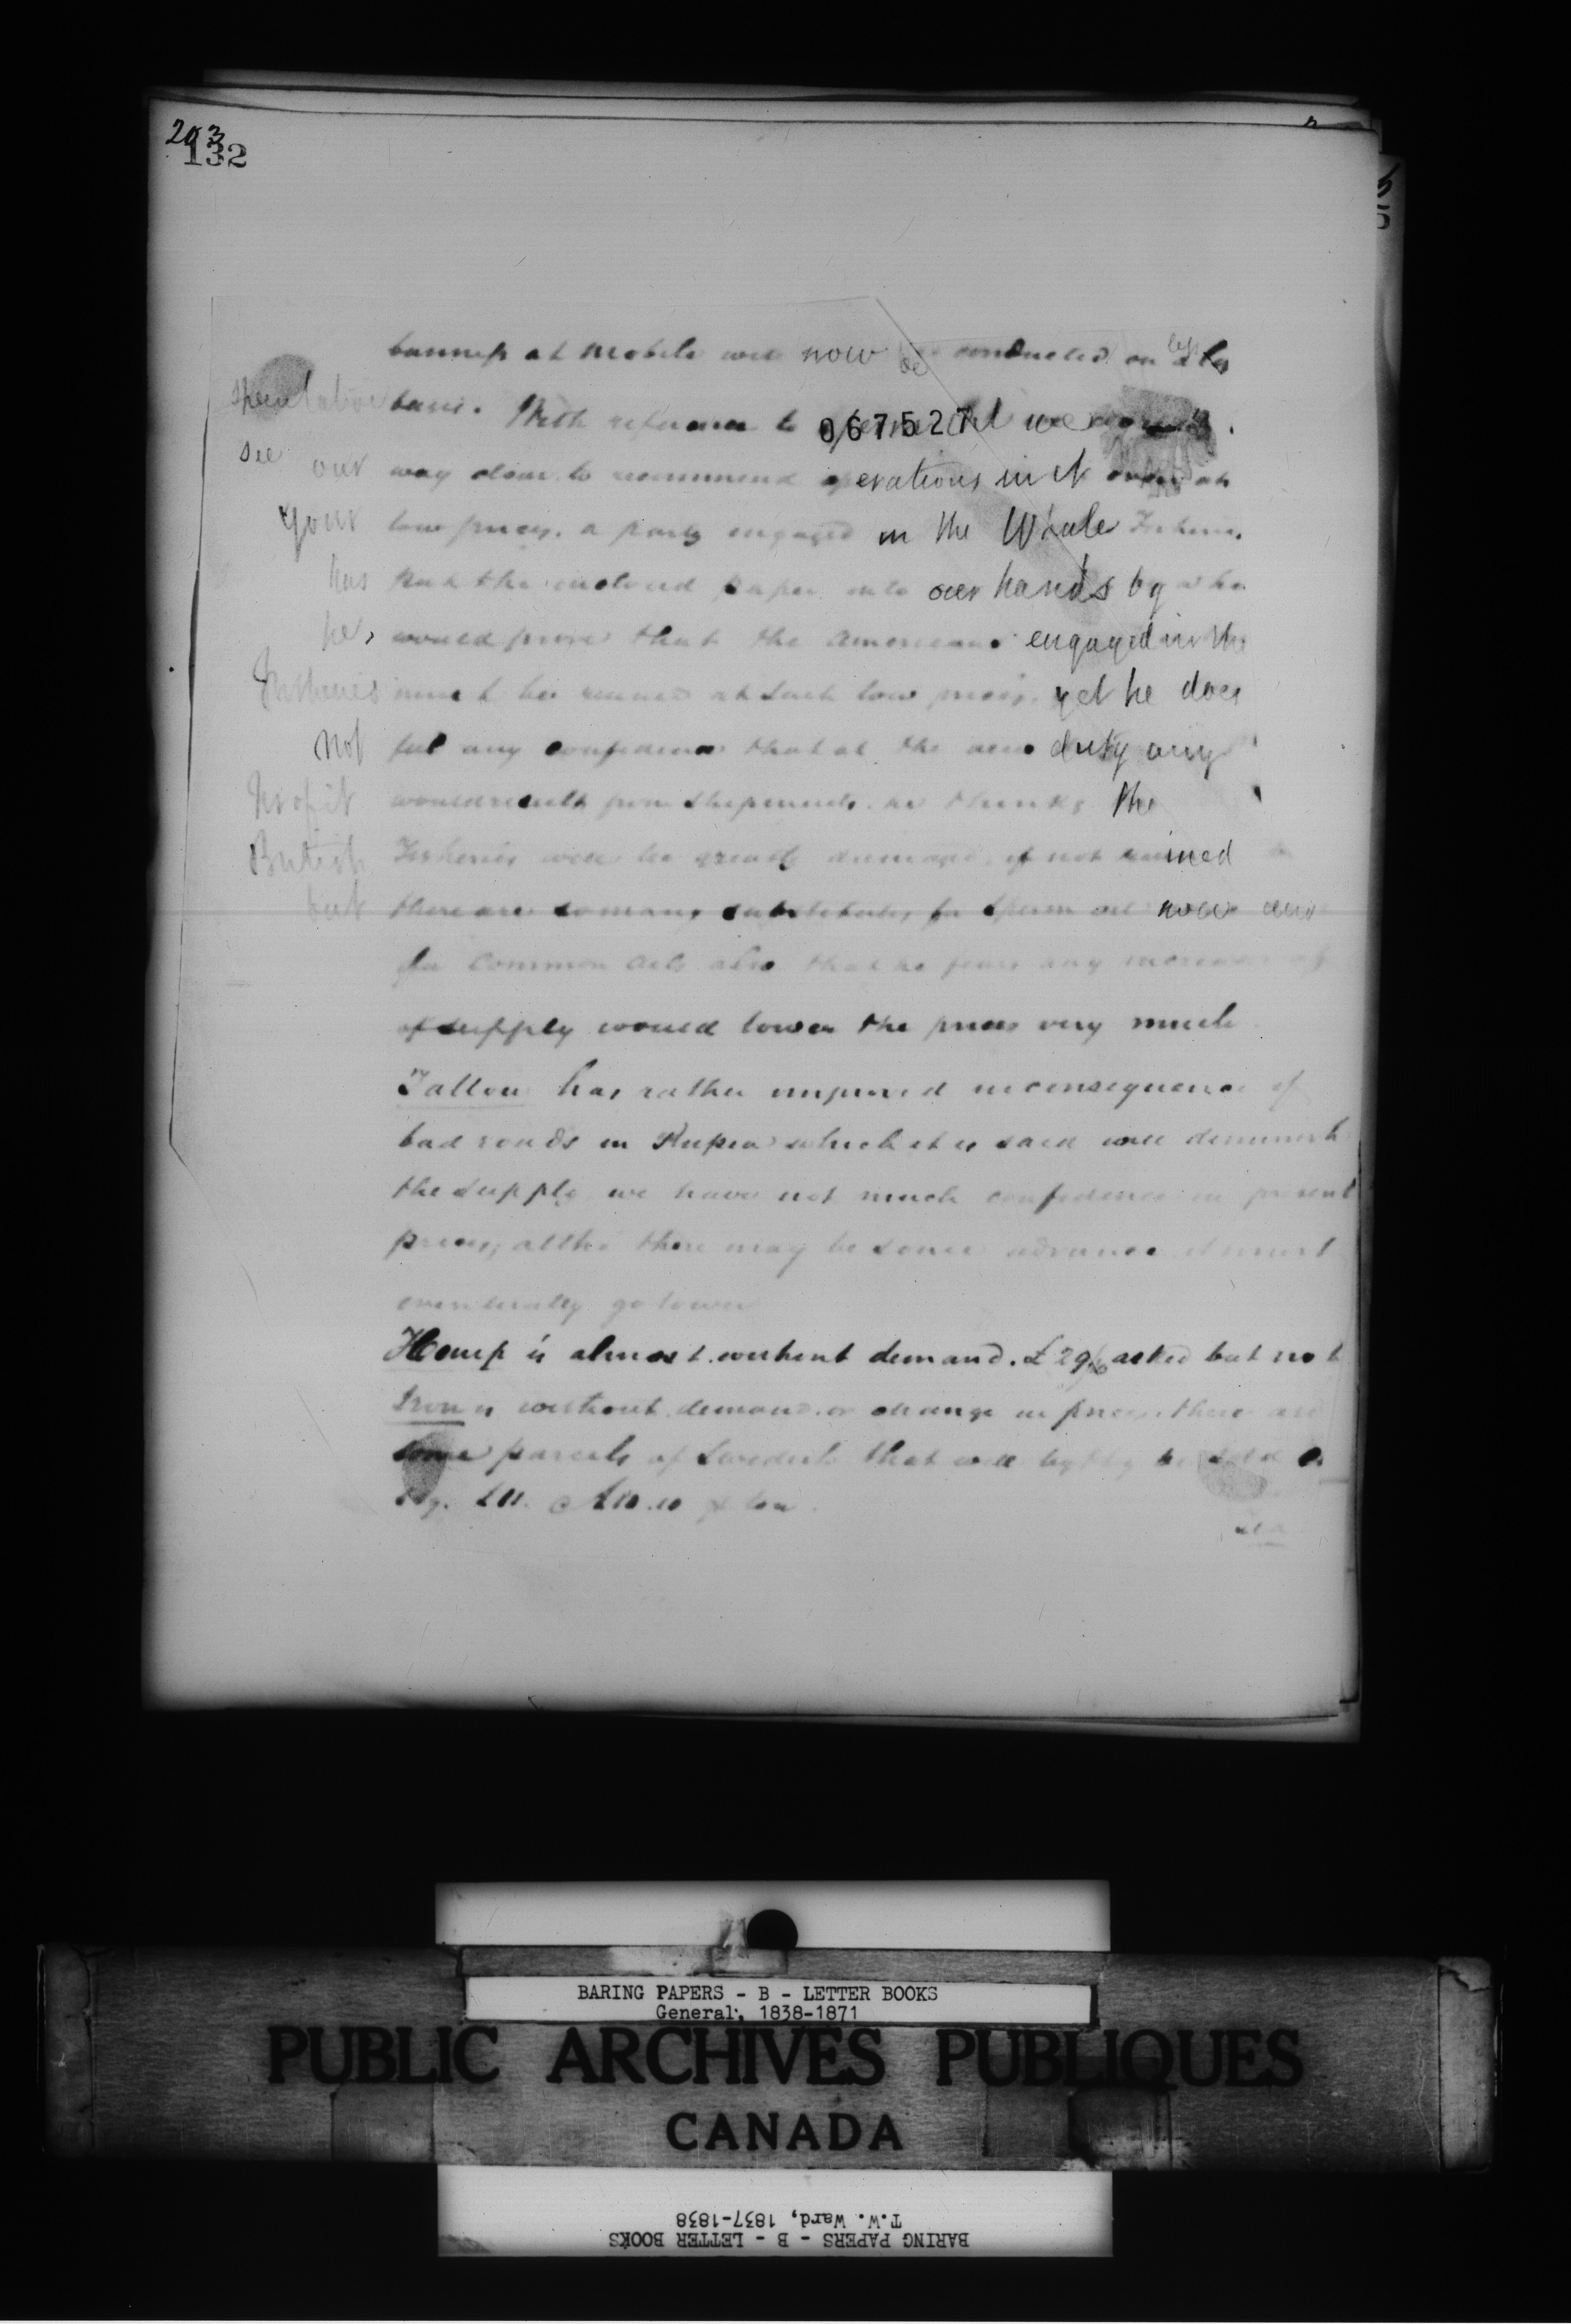 203
132
business at Mobile will now be conducted on a less
speculative basis. With reference to sperm oil we
067527
see our way clear to recommend operations in it even at
your low prices. a party engaged in the Whale Fisheries
has put the enclosed paper into our hands by wh
he, would prove that the Americans engaged in the
Fisheries must be ruined at such low prices. yet he does
not feel any confidence that at the new duty any
Profit would result from shipments. he thinks the
British Fisheries will be greatly damaged if not ruined
but there are so many substitutes for Sperm oil now and
for Common Oils also that he fears any increase of
of supply would lower the prices very much
Tallow has rather improved in consequence of
bad roads in Russia which it is said will diminish
the supply we have not much confidence in present
prices, altho there may be some advance it must
eventually go lower
Hemp is almost without demand. £29 asked but not
Iron is without demand or change in prices. there are
some parcels of Swedish that will be sold
£11. @ £10.10 ton
BARING PAPERS - B - LETTER BOOKS
General, 1838-1871
PUBLIC ARCHIVES PUBLIQUES
CANADA
T.W. Ward, 1837-1838
BARING PAPERS - B - LETTER BOOKS